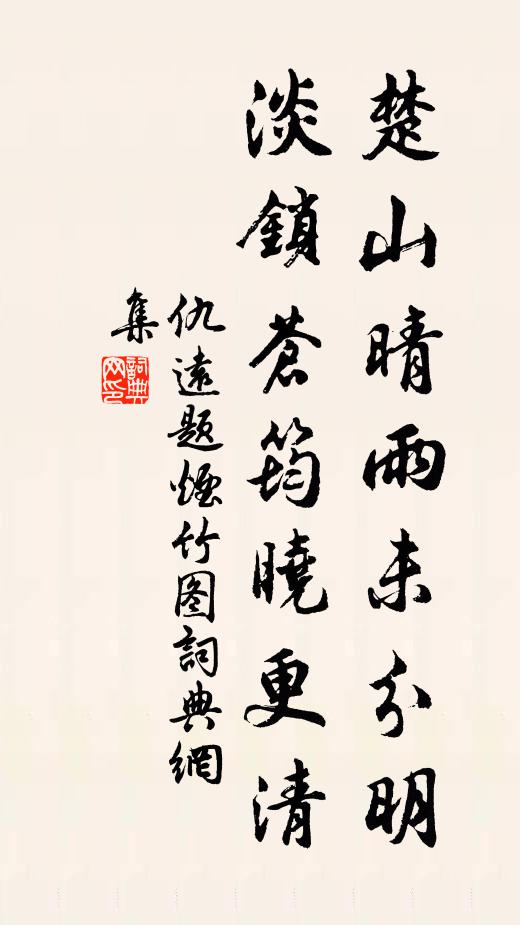 楚山晴雨未分明
淡鎖蒼筠曉更清
仇遠題煙竹图詞典網
集
詞典网印